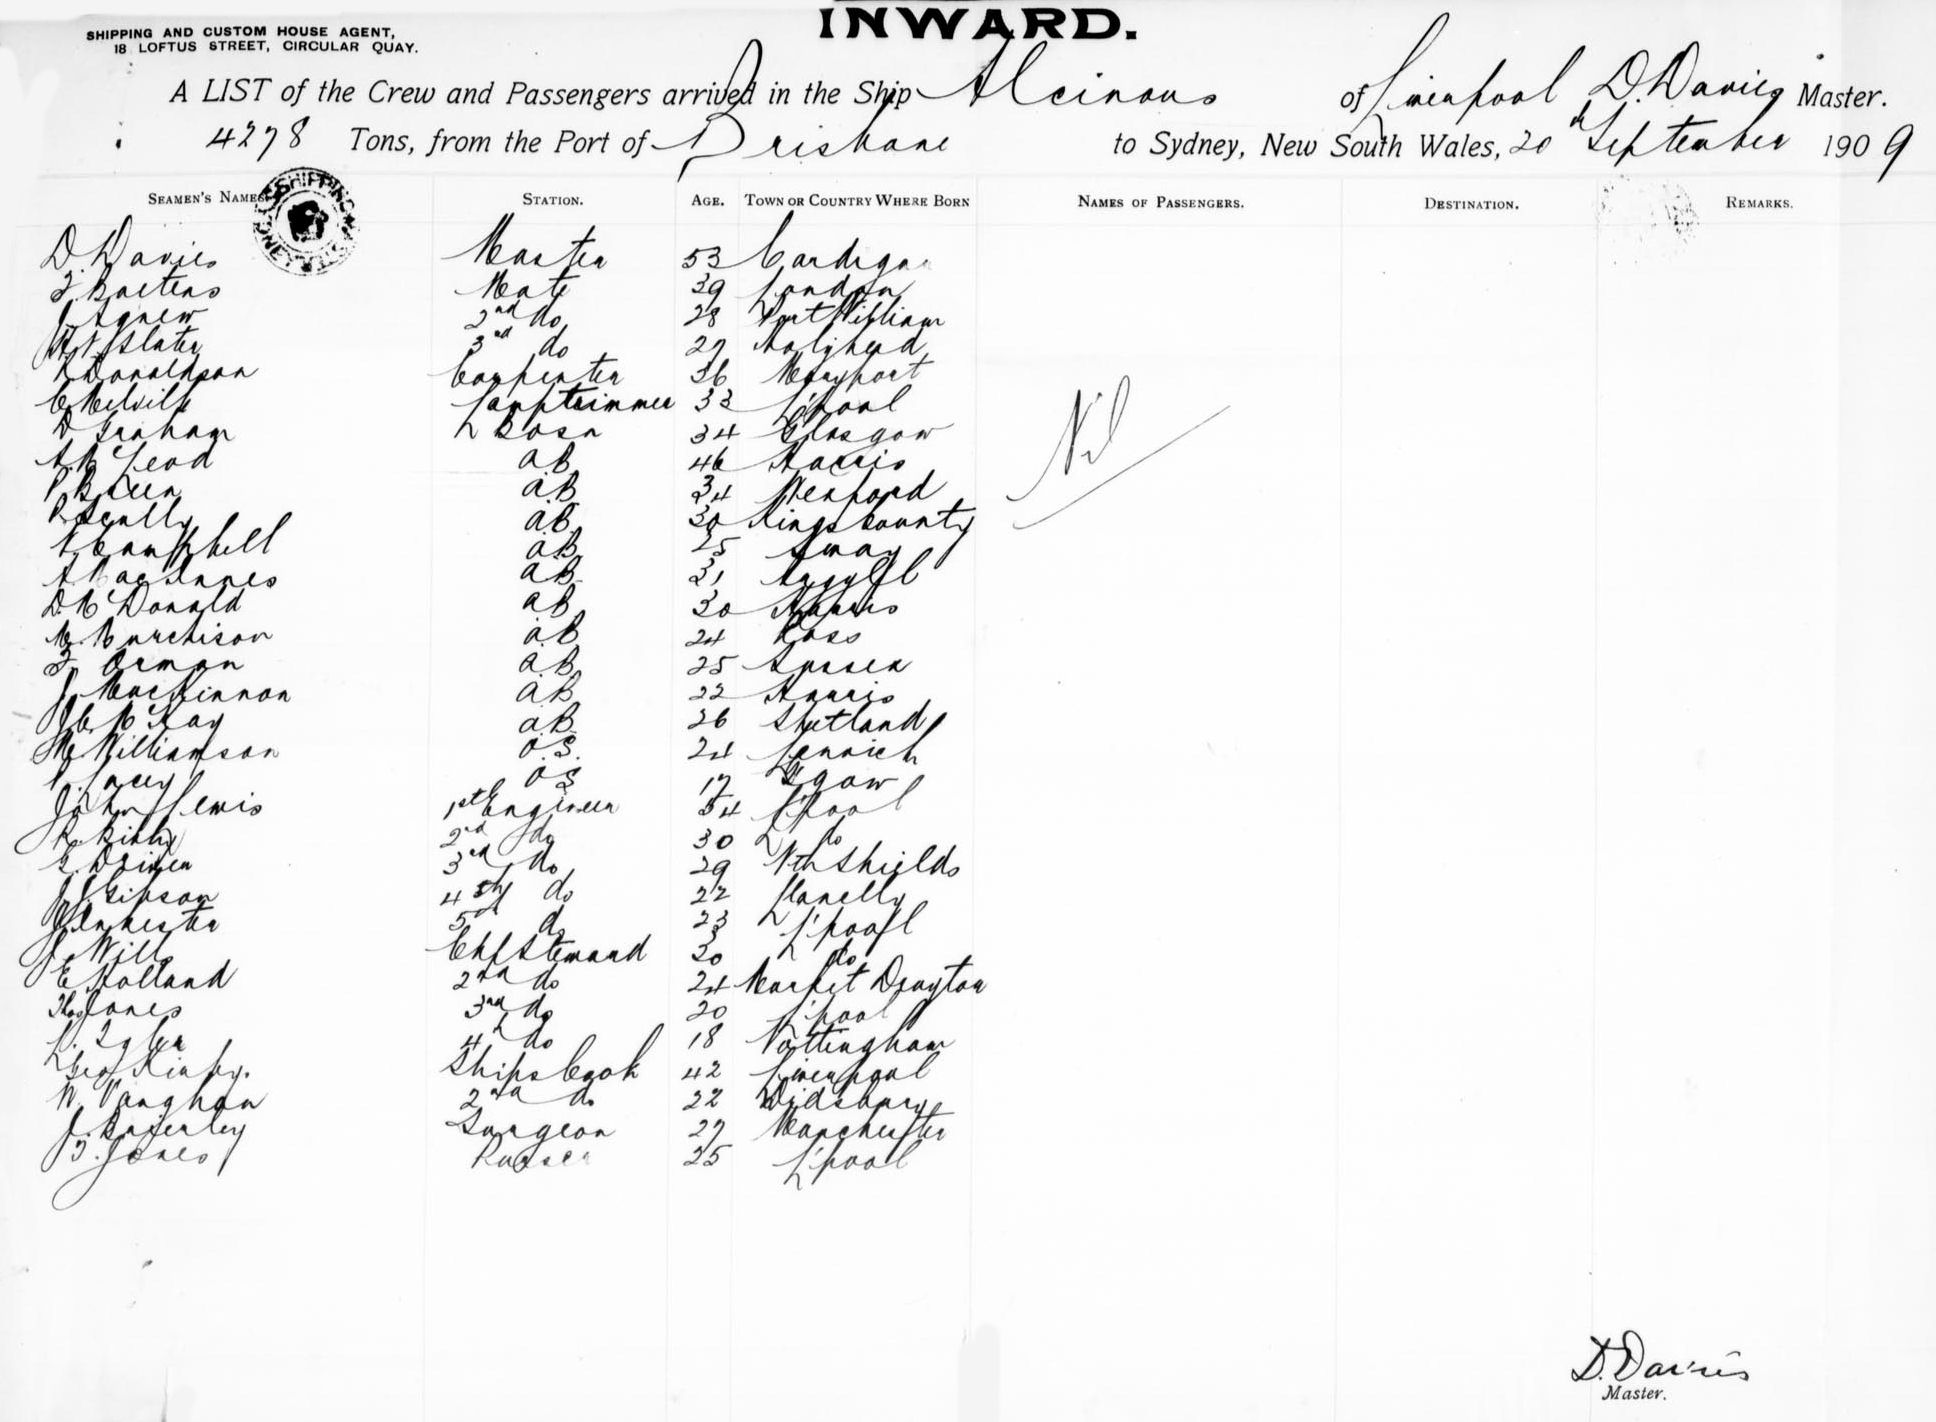 INWARD.
SHIPPING AND CUSTOM HOUSE AGENT,
18 LOFTUS STREET, CIRCULAR QUAY.
A LIST of the Crew and Passengers arrived in the Ship Alcinous of Liverpool D. Davies Master.
4278 Tons, from the Port of Brisbane to Sydney, New South Wales, 20th September 1909
SEAMEN'S NAMES. STATION. AGE. TOWN OR COUNTRY WHERE BORN NAMES OF PASSENGERS. DESTINATION. REMARKS.
D. Davies Master 53 Cardigan
Mate 39 London
J Agnew 2nd do 28 Port William
Slater 3rd do 27 Holyhead
Donaldson Carpenter 36 Maryport
C Melville Lamptrimmer 33 L'pool
Nil
D Graham Bosn 34 Glasgow
A. McLeod AB 46 Harris
P Breen AB 34 Wexford
P Scully AB 30 Kings County
N Campbell AB 25
A. MacInnes AB 31 Argyll
D. McDonald AB 30 Harris
M. Murchison AB 24 Ross
Orman AB 25 Sussex
J. MacKinnon AB 22 Harris
J C McKay AB 26 Shetland
Williamson O.S. 24 Lerwick
P. Lacey OS 17 Ggow
John Lewis 1st Engineer 54 L'pool
R. 2nd do 30 do
3rd do 29 Nth Shields
J. Gibson 4th do 22 Llanelly
5th do 23 L'pool
J. Will Chf Steward 30 do
E Holland 2nd do 24 Market Drayton
Thos Jones 3rd do 20 L'pool
4th do 18 Nottingham
Geo Kirby. Ships Cook 42 Liverpool
W. Vaughan 2nd do 22 Didsbury
J. Brierley Surgeon 27 Manchester
Jones Purser 25 L'pool
D. Davies
Master.